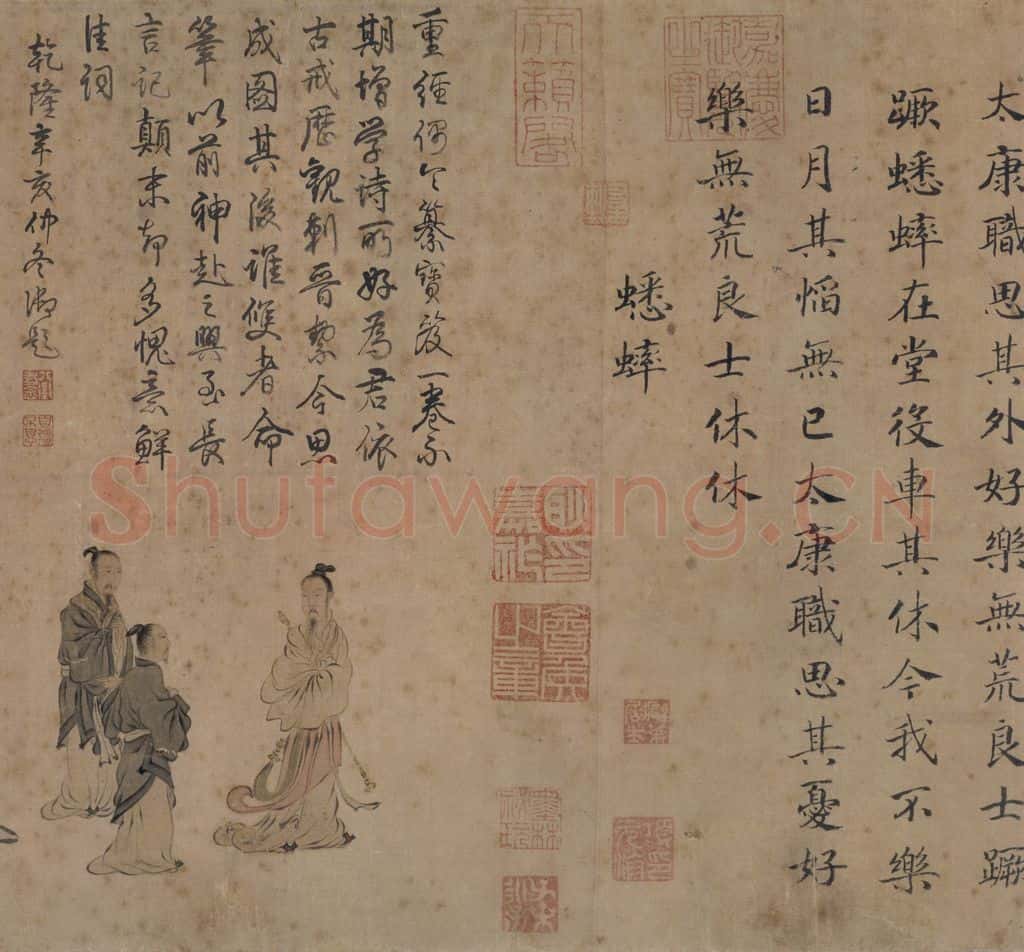 太康職思其外好樂無荒良士蹶
蹶蟋蟀在堂役車其休今我不樂
日月其慆無已太康職思其憂好
樂無荒良士休休
蟋蟀
嘉慶御覽之寶
天籟閣
重纂寶笈一卷示
期增学诗所好為君依
古戒歷觀刺晉絜今思
成圖其後誰俟者命
筆以前神赴之興至長
言記顛末却多愧意鮮
佳詞
乾隆辛亥仲冬御題
Shufawang.CN